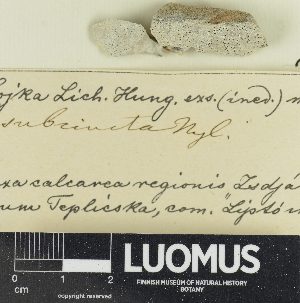 ojka Lich. Hung. exs. (ined.) n
subcincta Nyl.
xa calcarea regionis Zsdjá
um Teplicska, com. "Liptó
0 1 2
cm copyright reserved
LUOMUS
FINNISH MUSEUM OF NATURAL HISTORY
BOTANY